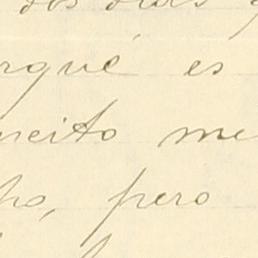 dos dias
rque es
neito me
ho, pero